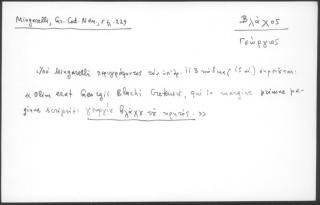 Mingarelli, Gr. Cod. Nan., σελ. 229
Βλάχος
Γεώργιος
Ὁ Mingarelli περιγράφοντας τὸν ὑπ' ἀρ. κώδικα σημειώνει:
« Olim erat Georgii Blachi Cretensis, qui in margine primae pa-
ginae scripsit: γεωργίου βλάχου τοῦ κρητός. »